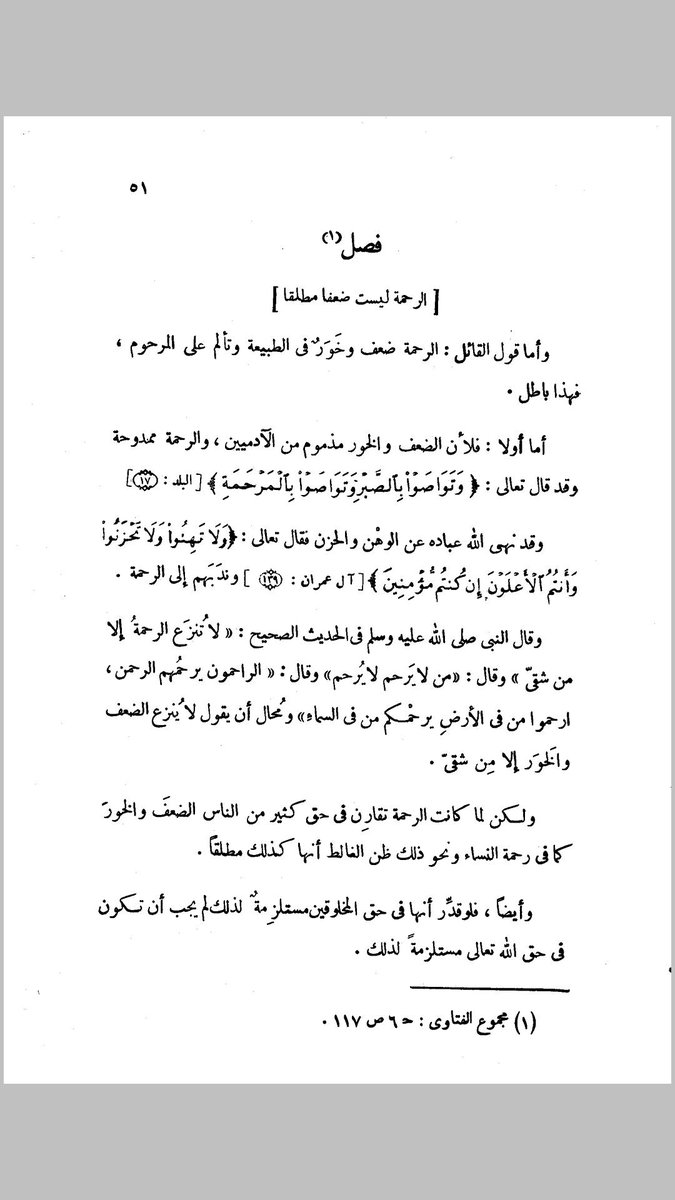 ٥١
فصل (١)
[ الرحمة ليست ضعفا مطلقا ]
وأما قول القائل : الرحمة ضعف وخَوَرٌ فى الطبيعة وتألم على المرحوم ،
فهذا باطل .
أما أولا : فلأن الضعف والخور مذموم من الآدميين ، والرحمة ممدوحة
وقد قال تعالى : ﴿ وَتَوَاصَوْا۟ بِٱلصَّبْرِ وَتَوَاصَوْا۟ بِٱلْمَرْحَمَةِ ﴾ [ البلد : ١٧ ]
وقد نهى الله عباده عن الوهْن والحزن فقال تعالى : ﴿وَلَا تَهِنُوا۟ وَلَا تَحْزَنُوا۟
وَأَنتُمُ ٱلْأَعْلَوْنَ إِن كُنتُم مُّؤْمِنِينَ ﴾ [ آل عمران : ١٣٩ ] وندَبَهم إلى الرحمة .
وقال النبى صلى الله عليه وسلم فى الحديث الصحيح : « لا تُنزَع الرحمةُ إلا
من شقىّ » وقال : «من لا يَرحم لا يُرحم» وقال : « الراحمون يرحمُهم الرحمن ،
ارحموا من فى الأرضِ يرحمْكم من فى السماءِ» ومُحال أن يقول لا يُنزع الضعف
والخوَر إلا مِن شقىّ .
ولكن لما كانت الرحمة تقارِن فى حق كثير من الناس الضعفَ والخورَ
كما فى رحمة النساء ونحو ذلك ظن الغالط أنها كذلك مطلقاً .
وأيضاً ، فلو قدِّر أنها فى حق المخلوقين مستلزِمةٌ لذلك لم يجب أن تكون
فى حق الله تعالى مستلزمةً لذلك .
(١) مجموع الفتاوى : حـ ٦ ص ١١٧ .